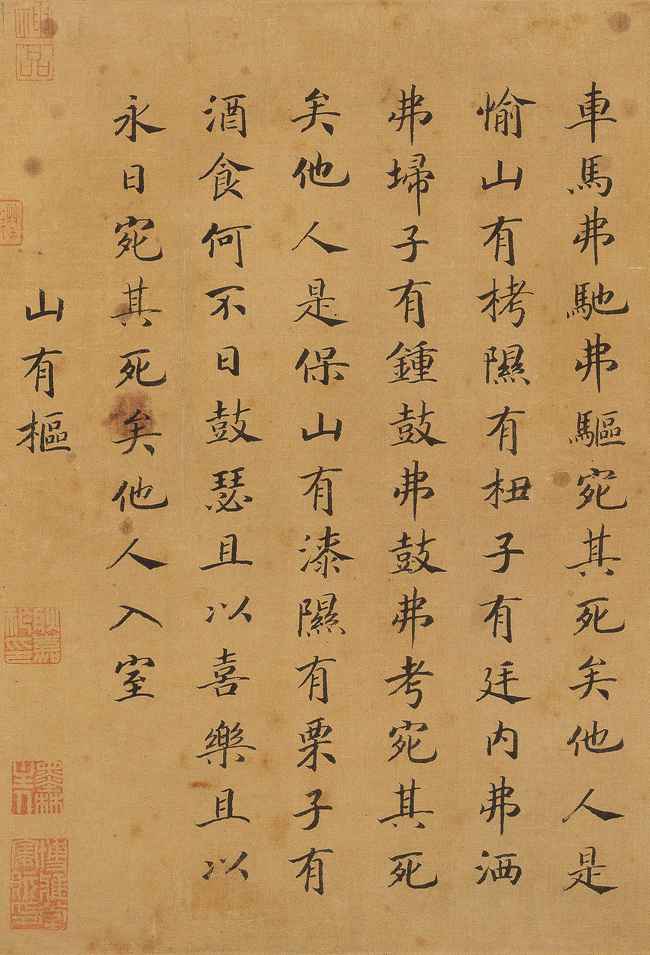 車馬弗馳弗驅宛其死矣他人是
愉山有栲隰有杻子有廷内弗洒
弗埽子有鍾鼓弗鼓弗考宛其死
矣他人是保山有漆隰有栗子有
酒食何不日鼓瑟且以喜樂且以
永日宛其死矣他人入室
山有樞